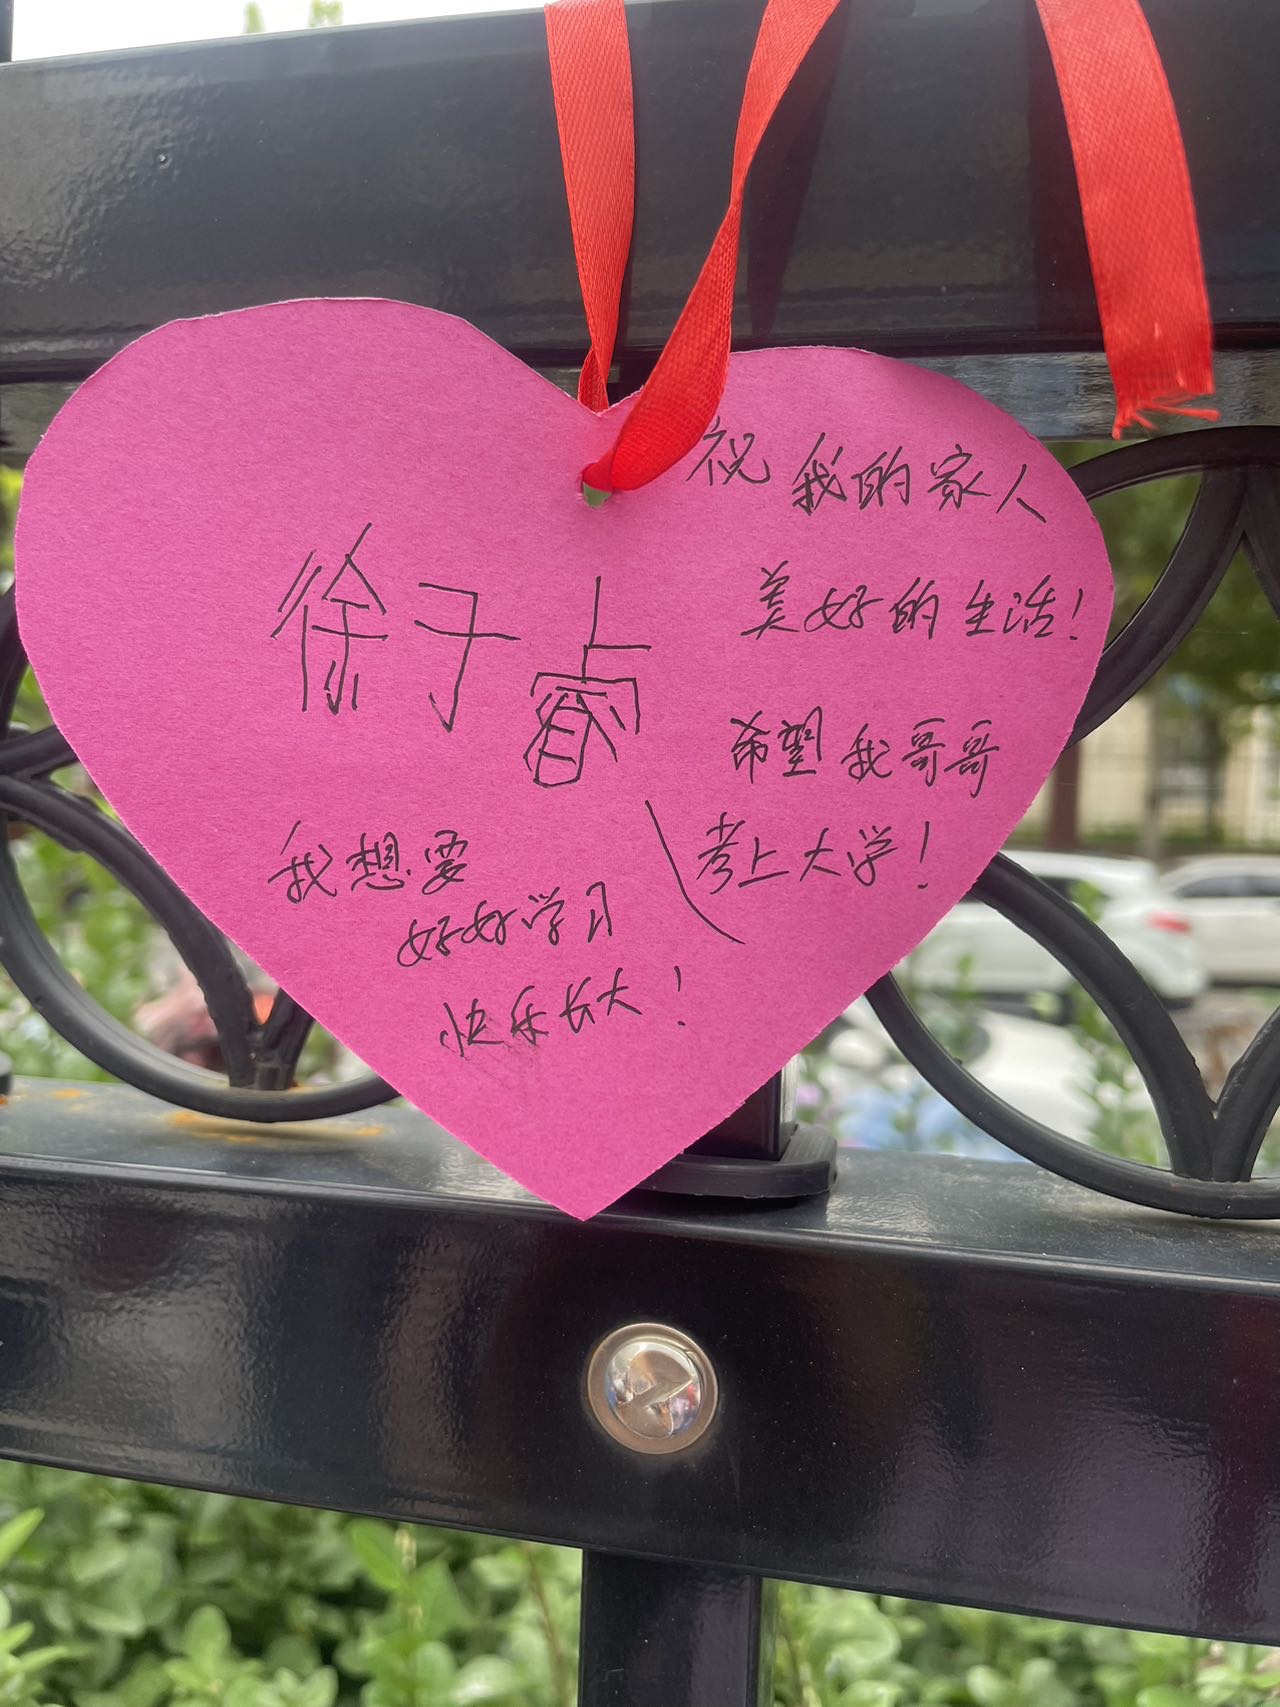 徐子睿
我想要
好好学习
快乐长大！
祝我的家人
美好的生活！
希望我哥哥
考上大学！